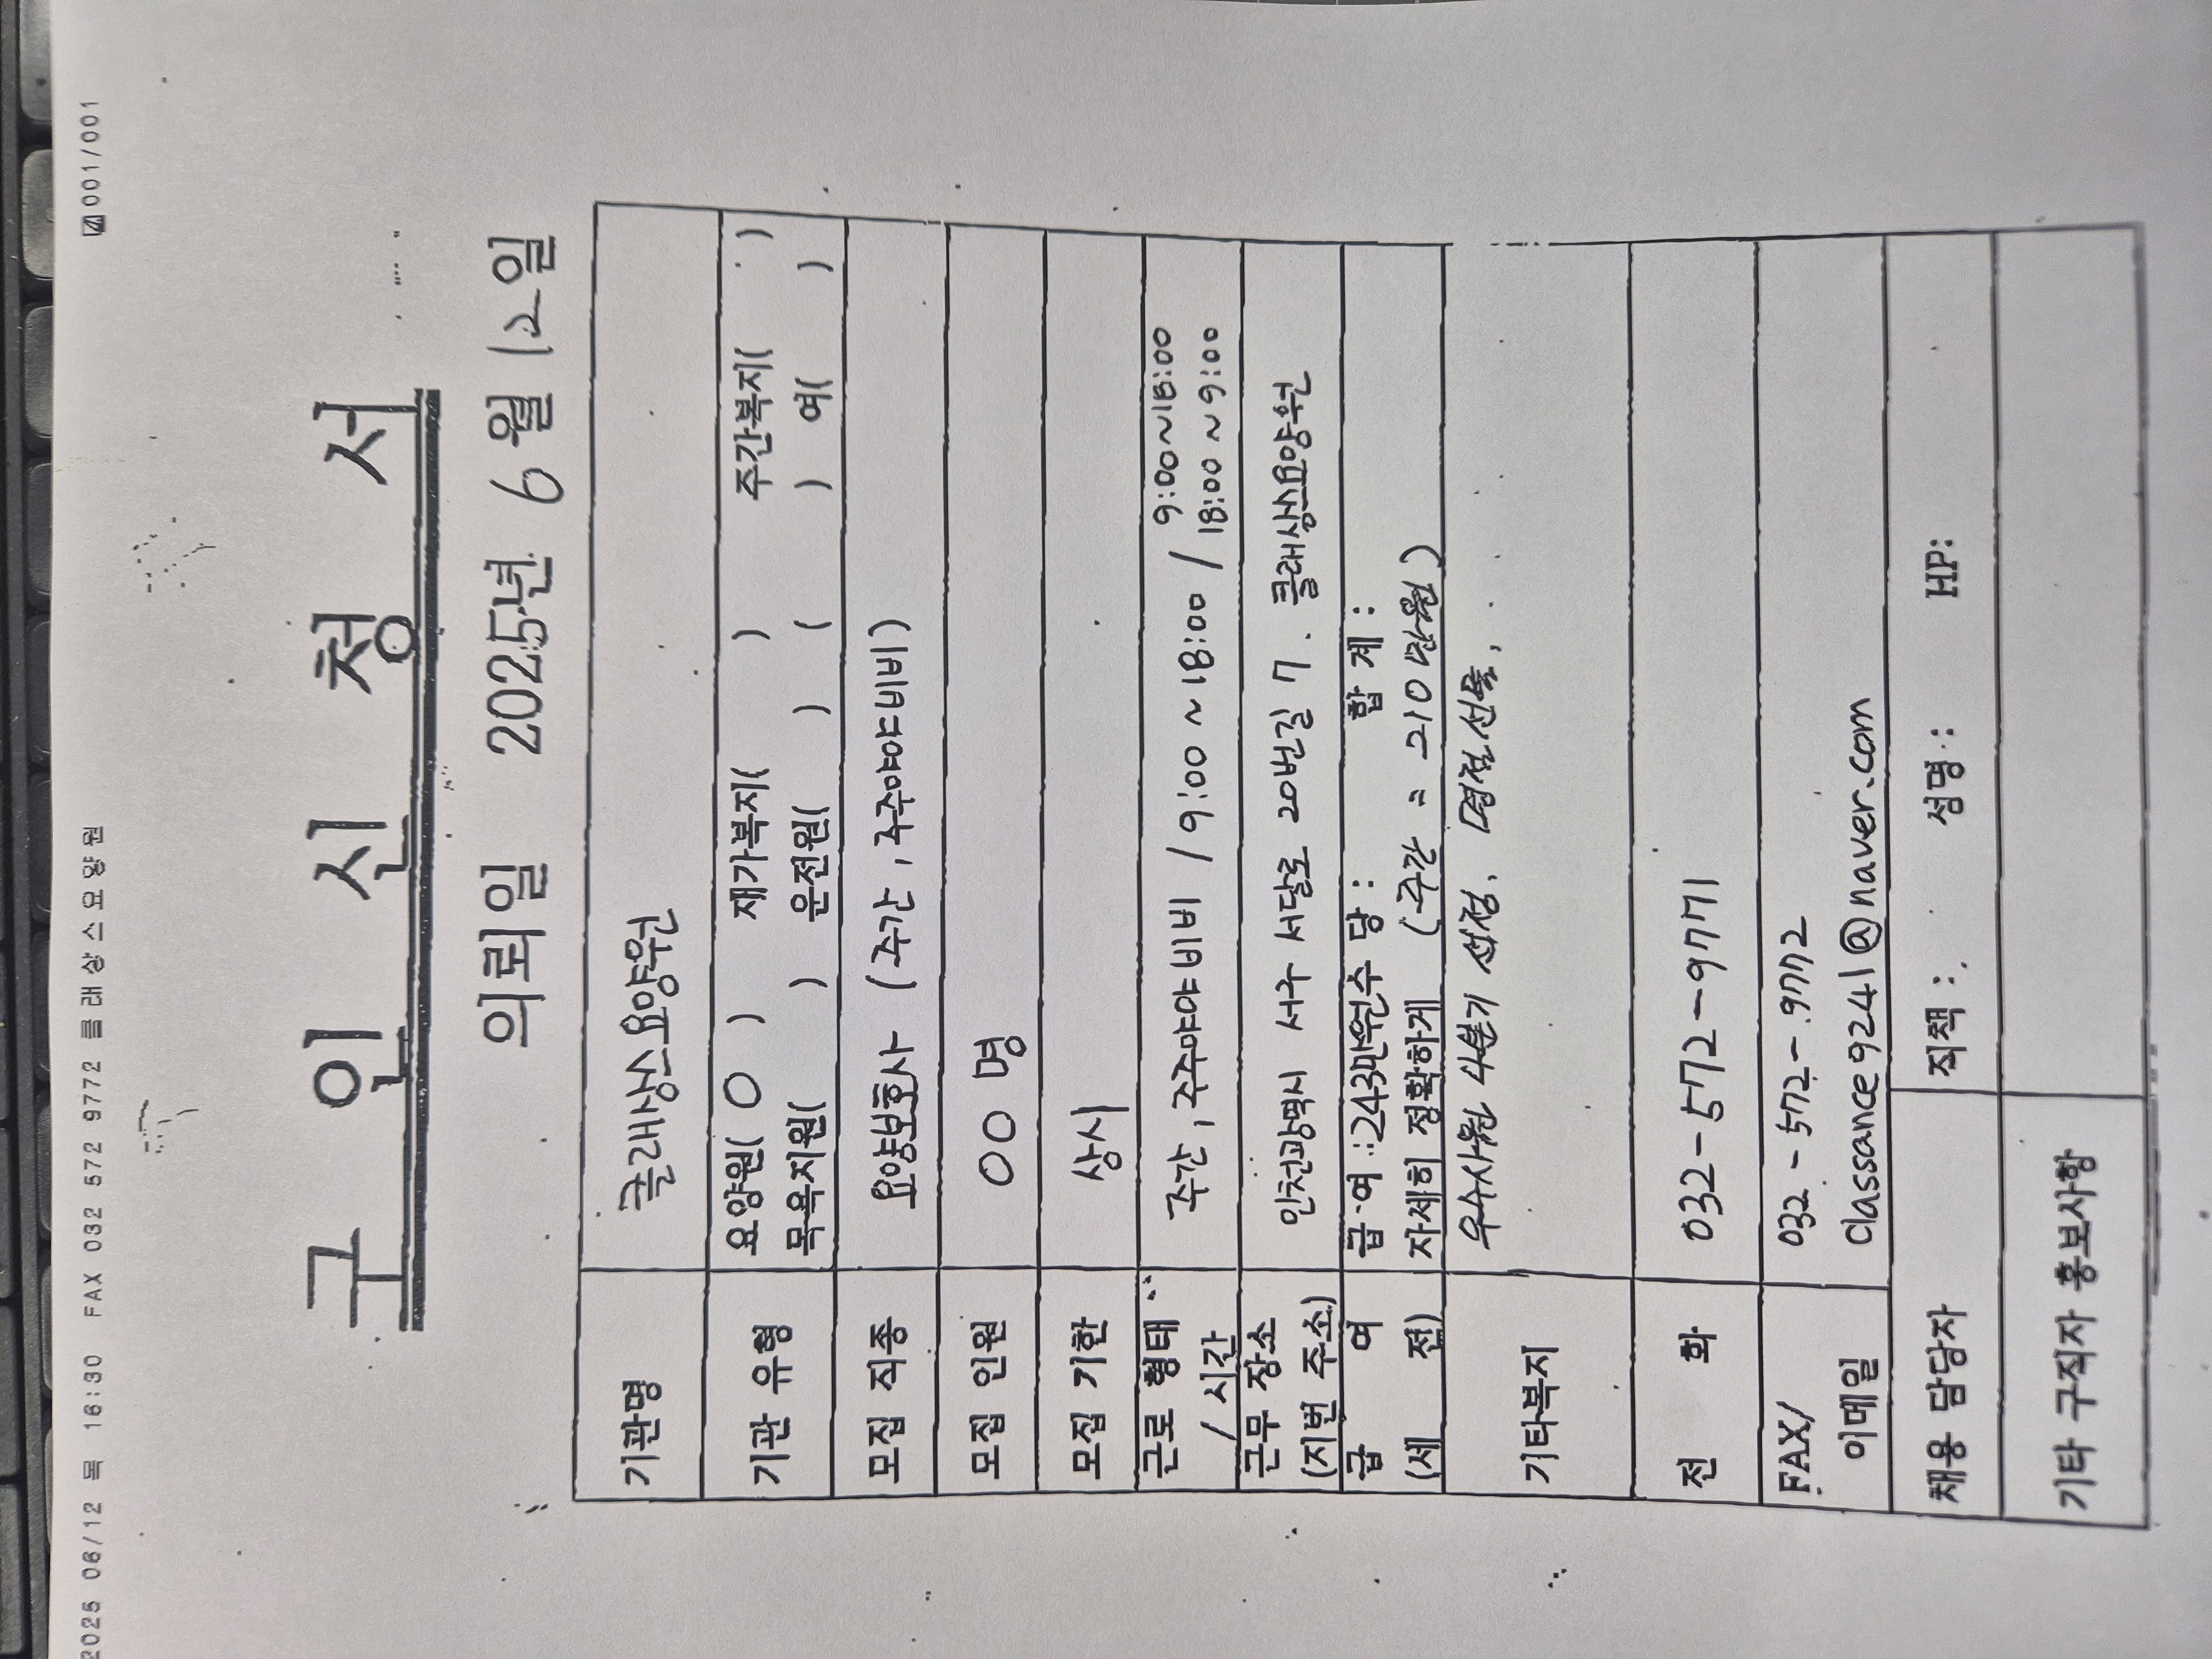 2025 06/12 목 16:30 FAX 032 572 9772 클래상스요양원 001/001
구 인 신 청 서
의뢰일 2025년 6월 12일
기관명 클래상스요양원
기관 유형 요양원( O ) 재가복지( ) 주간복지( )
목욕지원( ) 운전원( ) ( ) 여( )
모집 직종 요양보호사 (주간, 주주야야비비)
모집 인원 00 명
모집 기한 상시
근로 형태 / 시간 주간, 주주야야비비 / 9:00 ~ 18:00 / 9:00~18:00
18:00 ~ 9:00
근무 장소 (지번 주소) 인천광역시 서구 서달로 20번길 7. 클래상스요양원
급 여 급 여 : 243만원 수 당 : 합 계 :
(세 전) 자세히 정확하게 (주간 = 210만원)
기타복지 우수사원 4분기 선정, 명절선물,
전 화 032-572-9771
FAX/ 032-572-9772
이메일 classance9241@naver.com
채용 담당자 직책 : 성명 : HP:
기타 구직자 홍보사항